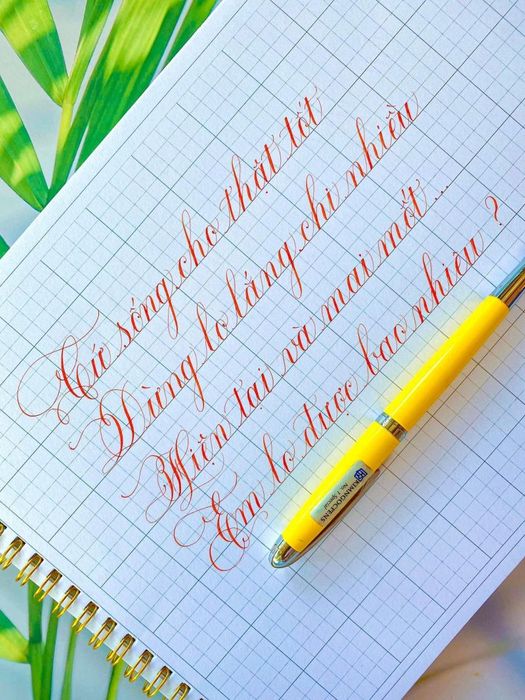 Cứ sống cho thật tốt
Đừng lo lắng chi nhiều
Hiện tại và mai mốt ...
Em lo được bao nhiêu ?
KIMNGOCPENS
No. 1 Special